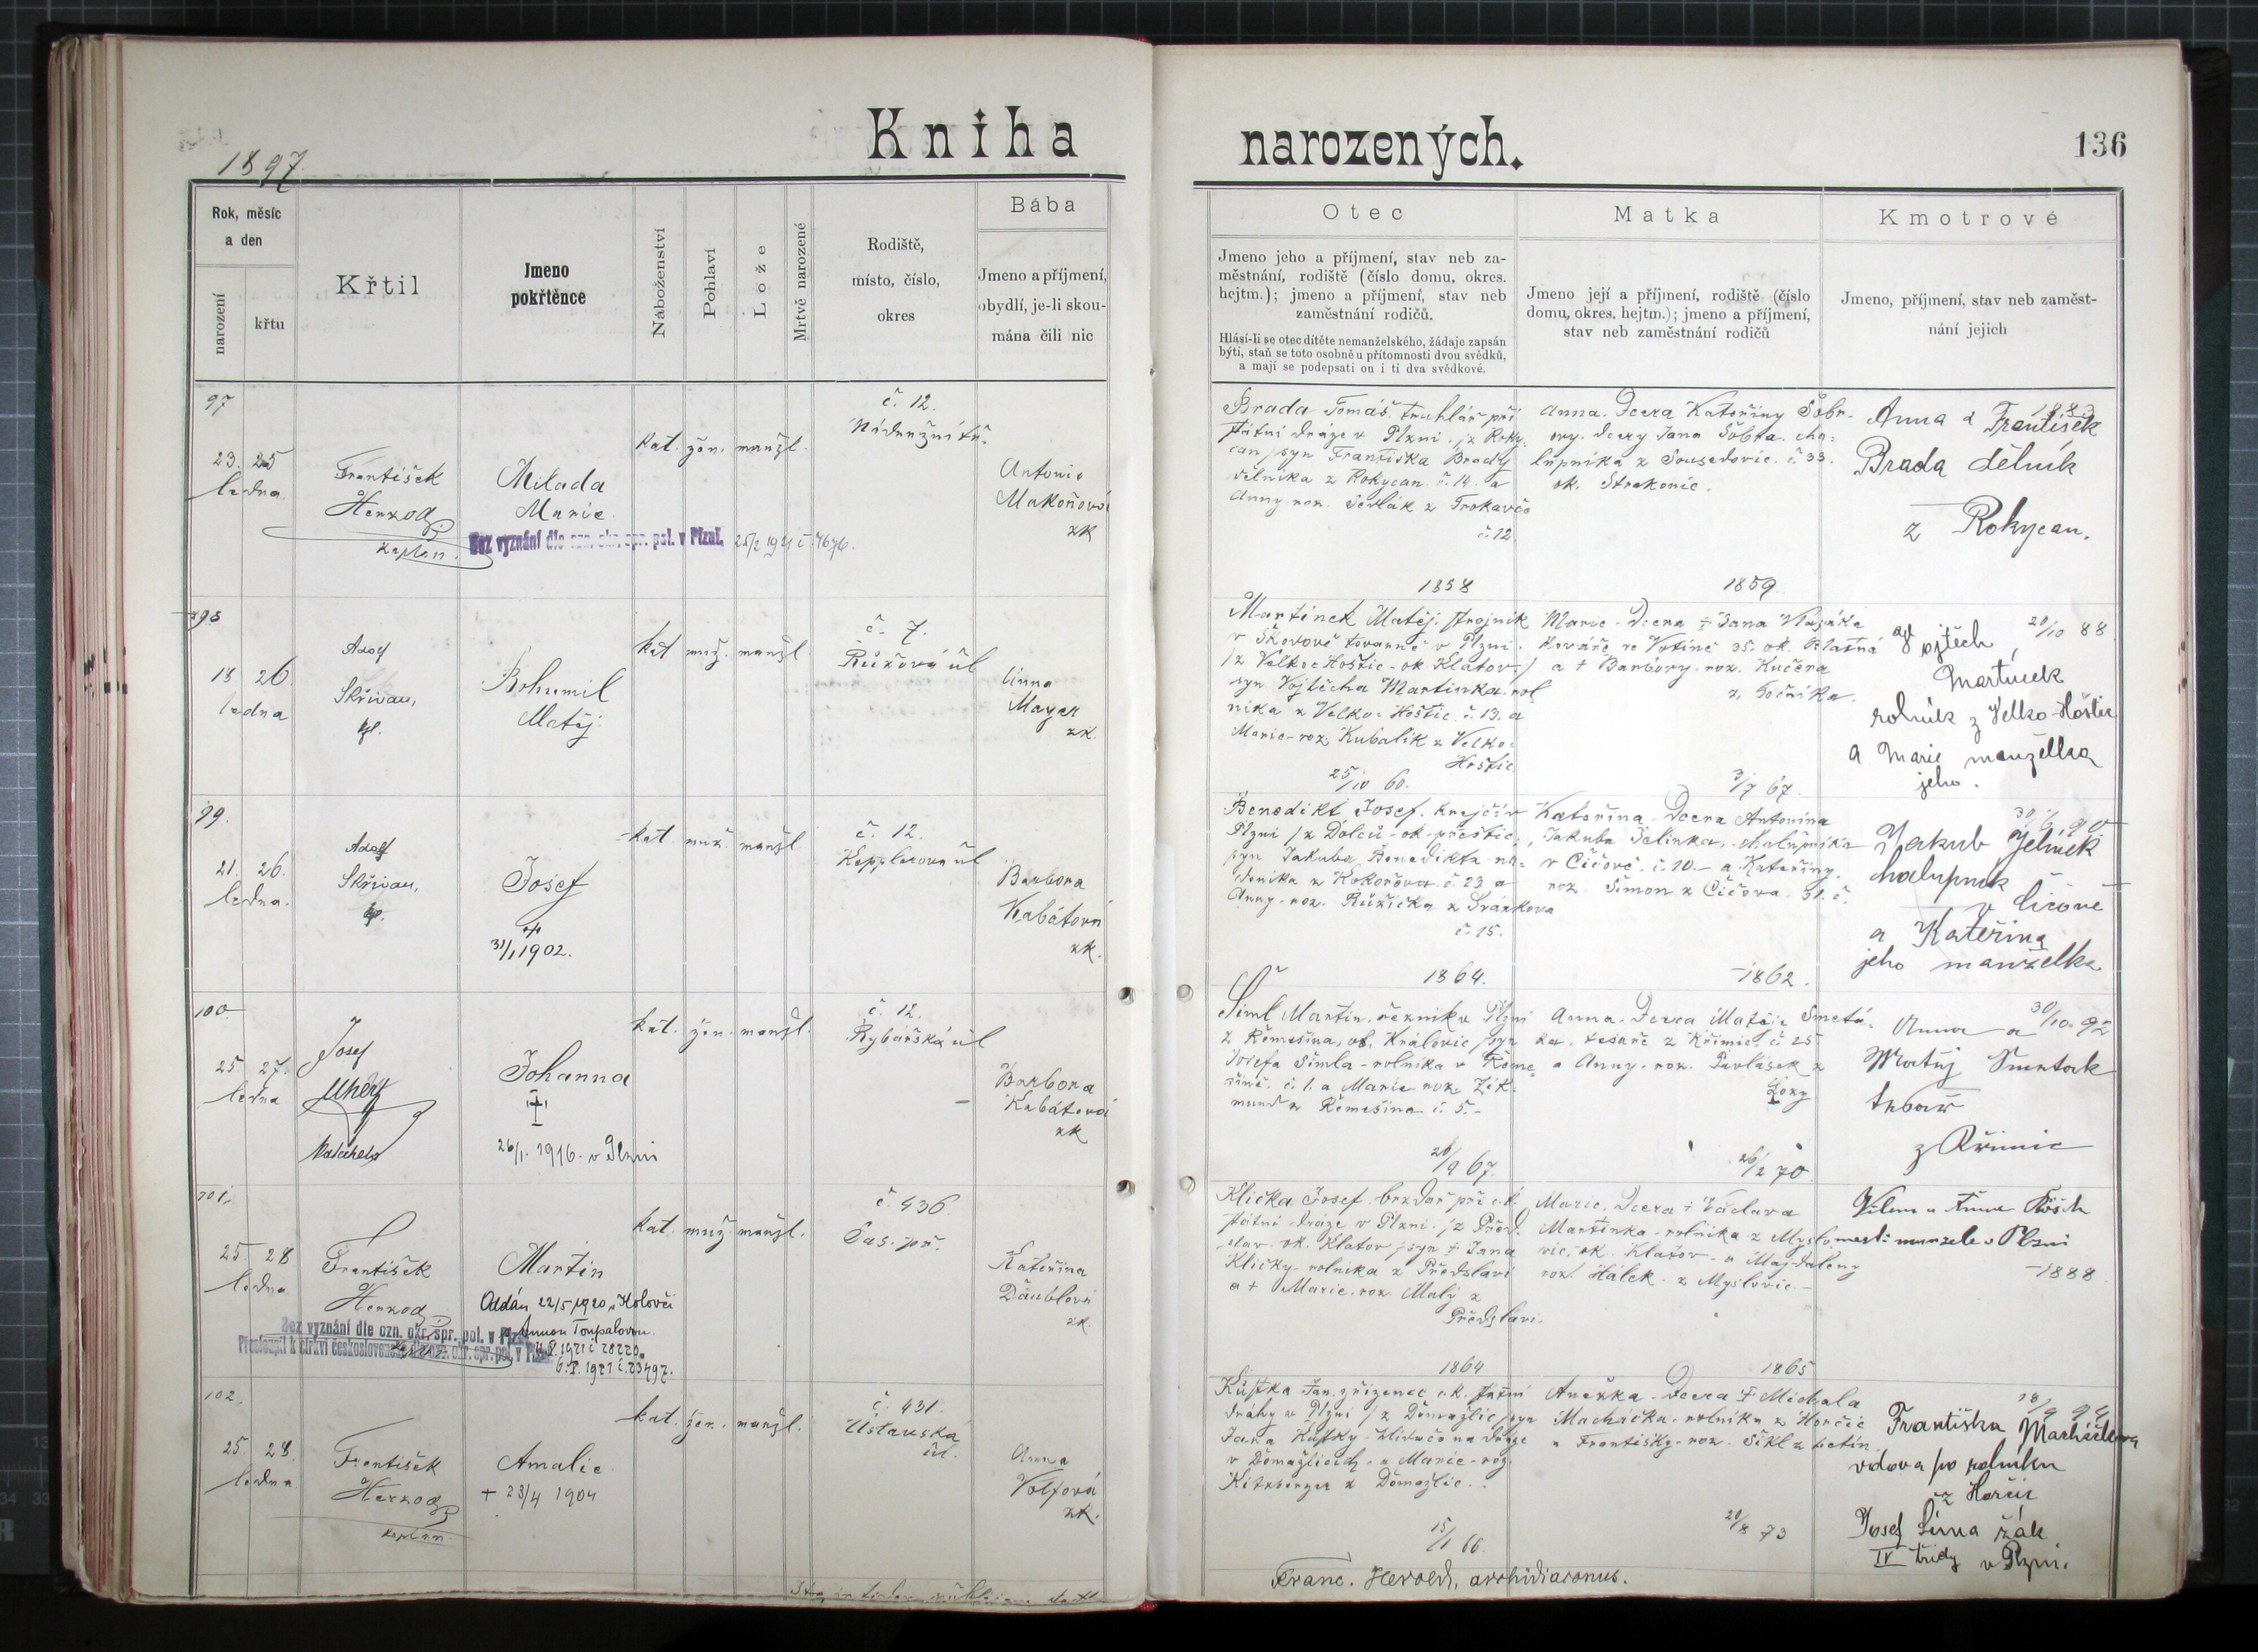 Kniha narozených.
136
1897
Rok, měsíc
a den
narození
křtu
Křtil
Jmeno
pokřtěnce
Náboženství
Pohlaví
Lože
Mrtvě narozené
Rodiště,
místo, číslo,
okres
Bába
Jmeno a příjmení,
obydlí, je-li skou-
mána čili nic
Otec
Jmeno jeho a příjmení, stav neb za-
městnání, rodiště (číslo domu, okres.
hejtm.); jmeno a příjmení, stav neb
zaměstnání rodičů.
Hlásí-li se otec dítěte nemanželského, žádaje zapsán
býti, staň se toto osobně u přítomnosti dvou svědků,
a mají se podepsati on i ti dva svědkové.
Matka
Jmeno její a příjmení, rodiště (číslo
domu, okres. hejtm.); jmeno a příjmení,
stav neb zaměstnání rodičů
Kmotrové
Jmeno, příjmení, stav neb zaměst-
nání jejich
97
23. 25
ledna
František
Herzog
kaplan.
Milada
Marie
Bez vyznání dle ozn. okr. spr. pol. v Plzni. 25/2 1921 č. 7676.
kat. žen. manžl.
č. 12.
Nádražní tř.
Antonie
Makoňová
zk
Brada Tomáš truhlář při
státní dráze v Plzni. /z Roky-
can /syn Františka Brady
dělníka z Rokycan č. 14. a
Anny roz. Sedlák z Trokavce
č. 12
1858
Anna. Dcera Kateřiny Šobr-
ovy. dcery Jana Šobra. cha-
lupníka z Sousedovic. č. 33.
ok. Strakonic.
1859
Anna a František
Brada dělník
z Rokycan.
98
18 26
ledna
Adolf
Skřivan,
kpl.
Bohumil
Matěj
kat muž. manžl.
č. 7.
Růžová ul
Anna
Mayer
zk.
Martínek Matěj. strojník
v Škodově továrně v Plzni.
/z Velko-Hoštic - ok Klatov /
syn Vojtěcha Martínka rol
níka z Velko-Hoštic č. 13. a
Marie - roz Kubalík z Velko-
Hoštic
25/10 60.
Marie - Dcera + Jana
kováře ve Votině 35. ok. Blatná
a + Barbory. roz. Kučera
z Točníka.
3/7 67.
Vojtěch 20/10 88
Martínek
rolník z Velko-Hoštic
a Marie manželka
jeho.
99.
21. 26.
ledna.
Adolf
Skřivan,
kpl.
Josef
+
31/1 1902.
kat. muž. manžl
č. 12.
Kopplerova ul
Barbora
Kabátová
zk.
Benedikt Josef. krejčí v
Plzni /z Dolců - ok. přeštic,
syn Jakuba Benedikta ná-
deníka z Kokořova č. 23 a
Anny - roz. Růžička z
č. 15.
1864.
Kateřina - Dcera Antonína
Jakuba Jelínka, chalupníka
v Čičově. č. 10 - a Kateřiny.
roz. Šimon z Čičova. 31. č.
1862.
30/6 90
Jakub Jelínek
chalupník
v Čičově
a Kateřina
jeho manželka
100
25 27.
ledna
Josef
Uherý
katecheta
Johanna
+
26/1. 1916. v Plzni
kat. žen. manžl.
č. 12.
Rybářská ul
Barbora
Kabátová
zk
Šiml Martin. řezník v Plzni
z Řemešína, ok. Kralovic /syn
Josefa Šimla - rolníka v Řeme-
šíně. č. 1. a Marie roz. Zik-
mund z Řemešína č. 5. -
26/9 67.
Anna. Dcera Matěje Smetá-
ka, tesaře z Křimic, č. 25
a Anny. roz. Pavlásek z
26/2 70
30/10. 92
Anna a
Matěj Smeták
tesař
z Křimic
101.
25 28
ledna
František
Herzog
Martin
Oddán 22/5 1920 v Kolovči
s Annou Toupalovou.
Bez vyznání dle ozn. okr. spr. pol. v Plzni
Přestoupil k církvi československé dle ozn. okr. spr. pol. v Plzni
kat. muž. manžl.
č. 436
Kateřina
Däublová
zk.
Klička Josef brzdař při c. k.
státní dráze v Plzni. /z Před-
slav. ok. Klatov /syn + Jana
Kličky - rolníka z Předslavi
a + Marie. roz. Malý z
Předslavi.
1864
Marie. Dcera + Václava
Martínka - rolníka z Myslo-
vic, ok. Klatov - a Majdaleny
roz. Hálek - z Myslovic. -
1865
Vilém a Anna
manzele v Plzni
1888
102.
25 28.
ledna
František
Herzog
kaplan
Amalie
+ 23/4 1904
kat. žen. manžl.
č. 431.
Ústavská
ul.
Anna
Volfová
zk.
Kůstka Jan. zřízenec c. k. státní
dráhy v Plzni /z Domažlic /syn
Jana Kůstky - hlídače na dráze
v Domažlicích - a Marie - roz.
Kitzberger z Domažlic.
15/1 66.
Anežka - Dcera + Michala
Macháčka - rolníka z Horčic
a Františky - roz. Šikl z
28/8 73
Františka Macháčková
vdova po rolníku
z Horčic
Josef Šíma žák
IV třídy v Plzni.
Franc. Herold, archidiaconus.